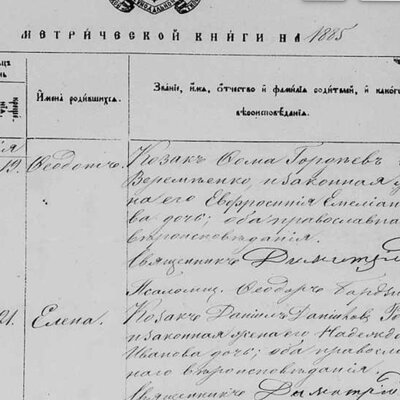 МЕТРИ́ЧЕСКОЙ КНИ́ГИ НА 1885
И҆мена̀ роди́вшихсѧ.
Зва́нїе, и҆́мѧ, ѻ҆́тчество и҆ фами́лїѧ роди́телей, и҆ како́г
вѣроисповѣ́данїѧ.
19. Ѳеодотъ.
Козакъ Ѳома
Веремѣенко, и законная
на его Евфросинія Емеліан
ва дочь; оба православна
вѣроисповѣданія.
Священникъ Димитрій
Псаломщ. Ѳеодоръ
21. Елена.
Козакъ Даніилъ
и законная жена его Надежда
Иванова дочь; оба правосла
наго вѣроисповѣданія.
Священникъ Димитрій